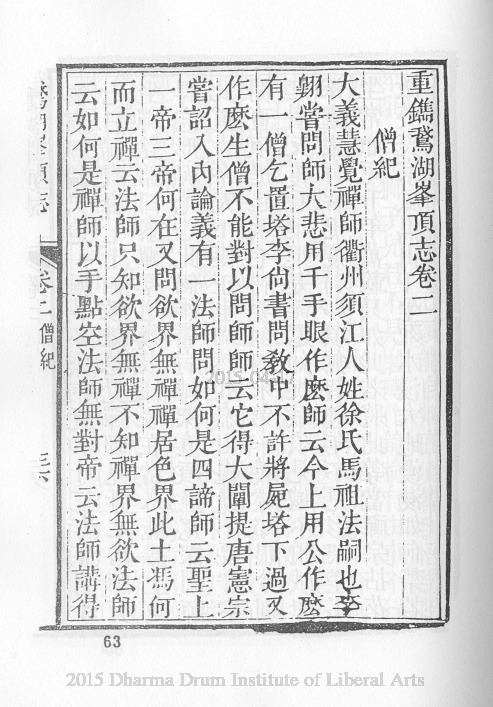 重鐫鵞湖峯頂志卷二
僧紀
大義慧覺禪師衢州須江人姓徐氏馬祖法嗣也李
翺嘗問師大悲用千手眼作麽師云今上用公作麽
有一僧乞置塔李尙書問敎中不許將屍塔下過又
作麽生僧不能對以問師師云它得大闡提唐憲宗
嘗詔入內論義有一法師問如何是四諦師云聖上
一帝三帝何在又問欲界無禪禪居色界此土馮何
而立禪云法師只知欲界無禪不知禪界無欲法師
云如何是禪師以手點空法師無對帝云法師講得
鵞湖峯頂志
卷二 僧紀
三六
63
2015 Dharma Drum Institute of Liberal Arts